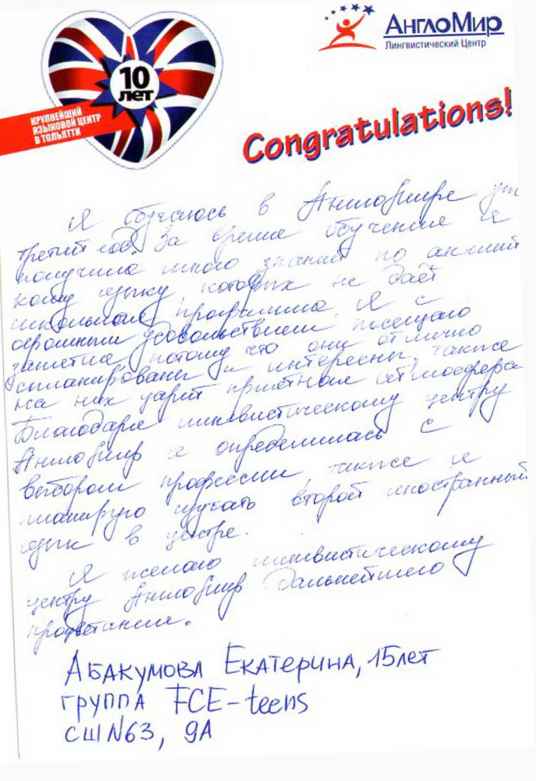 10
лет
КРУПНЕЙШИЙ
ЯЗЫКОВОЙ ЦЕНТР
В ТОЛЬЯТТИ
АнглоМир
Лингвистический Центр
Congratulations!
Я обучаюсь в АнглоМире уж
третий год. За время обучения я
получила много знаний по англий
кому языку которых не даёт
школьная программа. Я с
огромным удовольствием посещаю
занятия, потому что они отлично
спланированы и интересны, также
на них царит приятная атмосфера
Благодаря лингвистическому центру
АнглоМир я определилась с
выбором профессии также я
планирую изучать второй иностранный
язык в центре.
Я желаю лингвистическому
центру АнглоМир дальнейшего
процветания.
АБАКУМОВА ЕКАТЕРИНА, 15 лет
группа FCE-teens
СШ №63, 9А